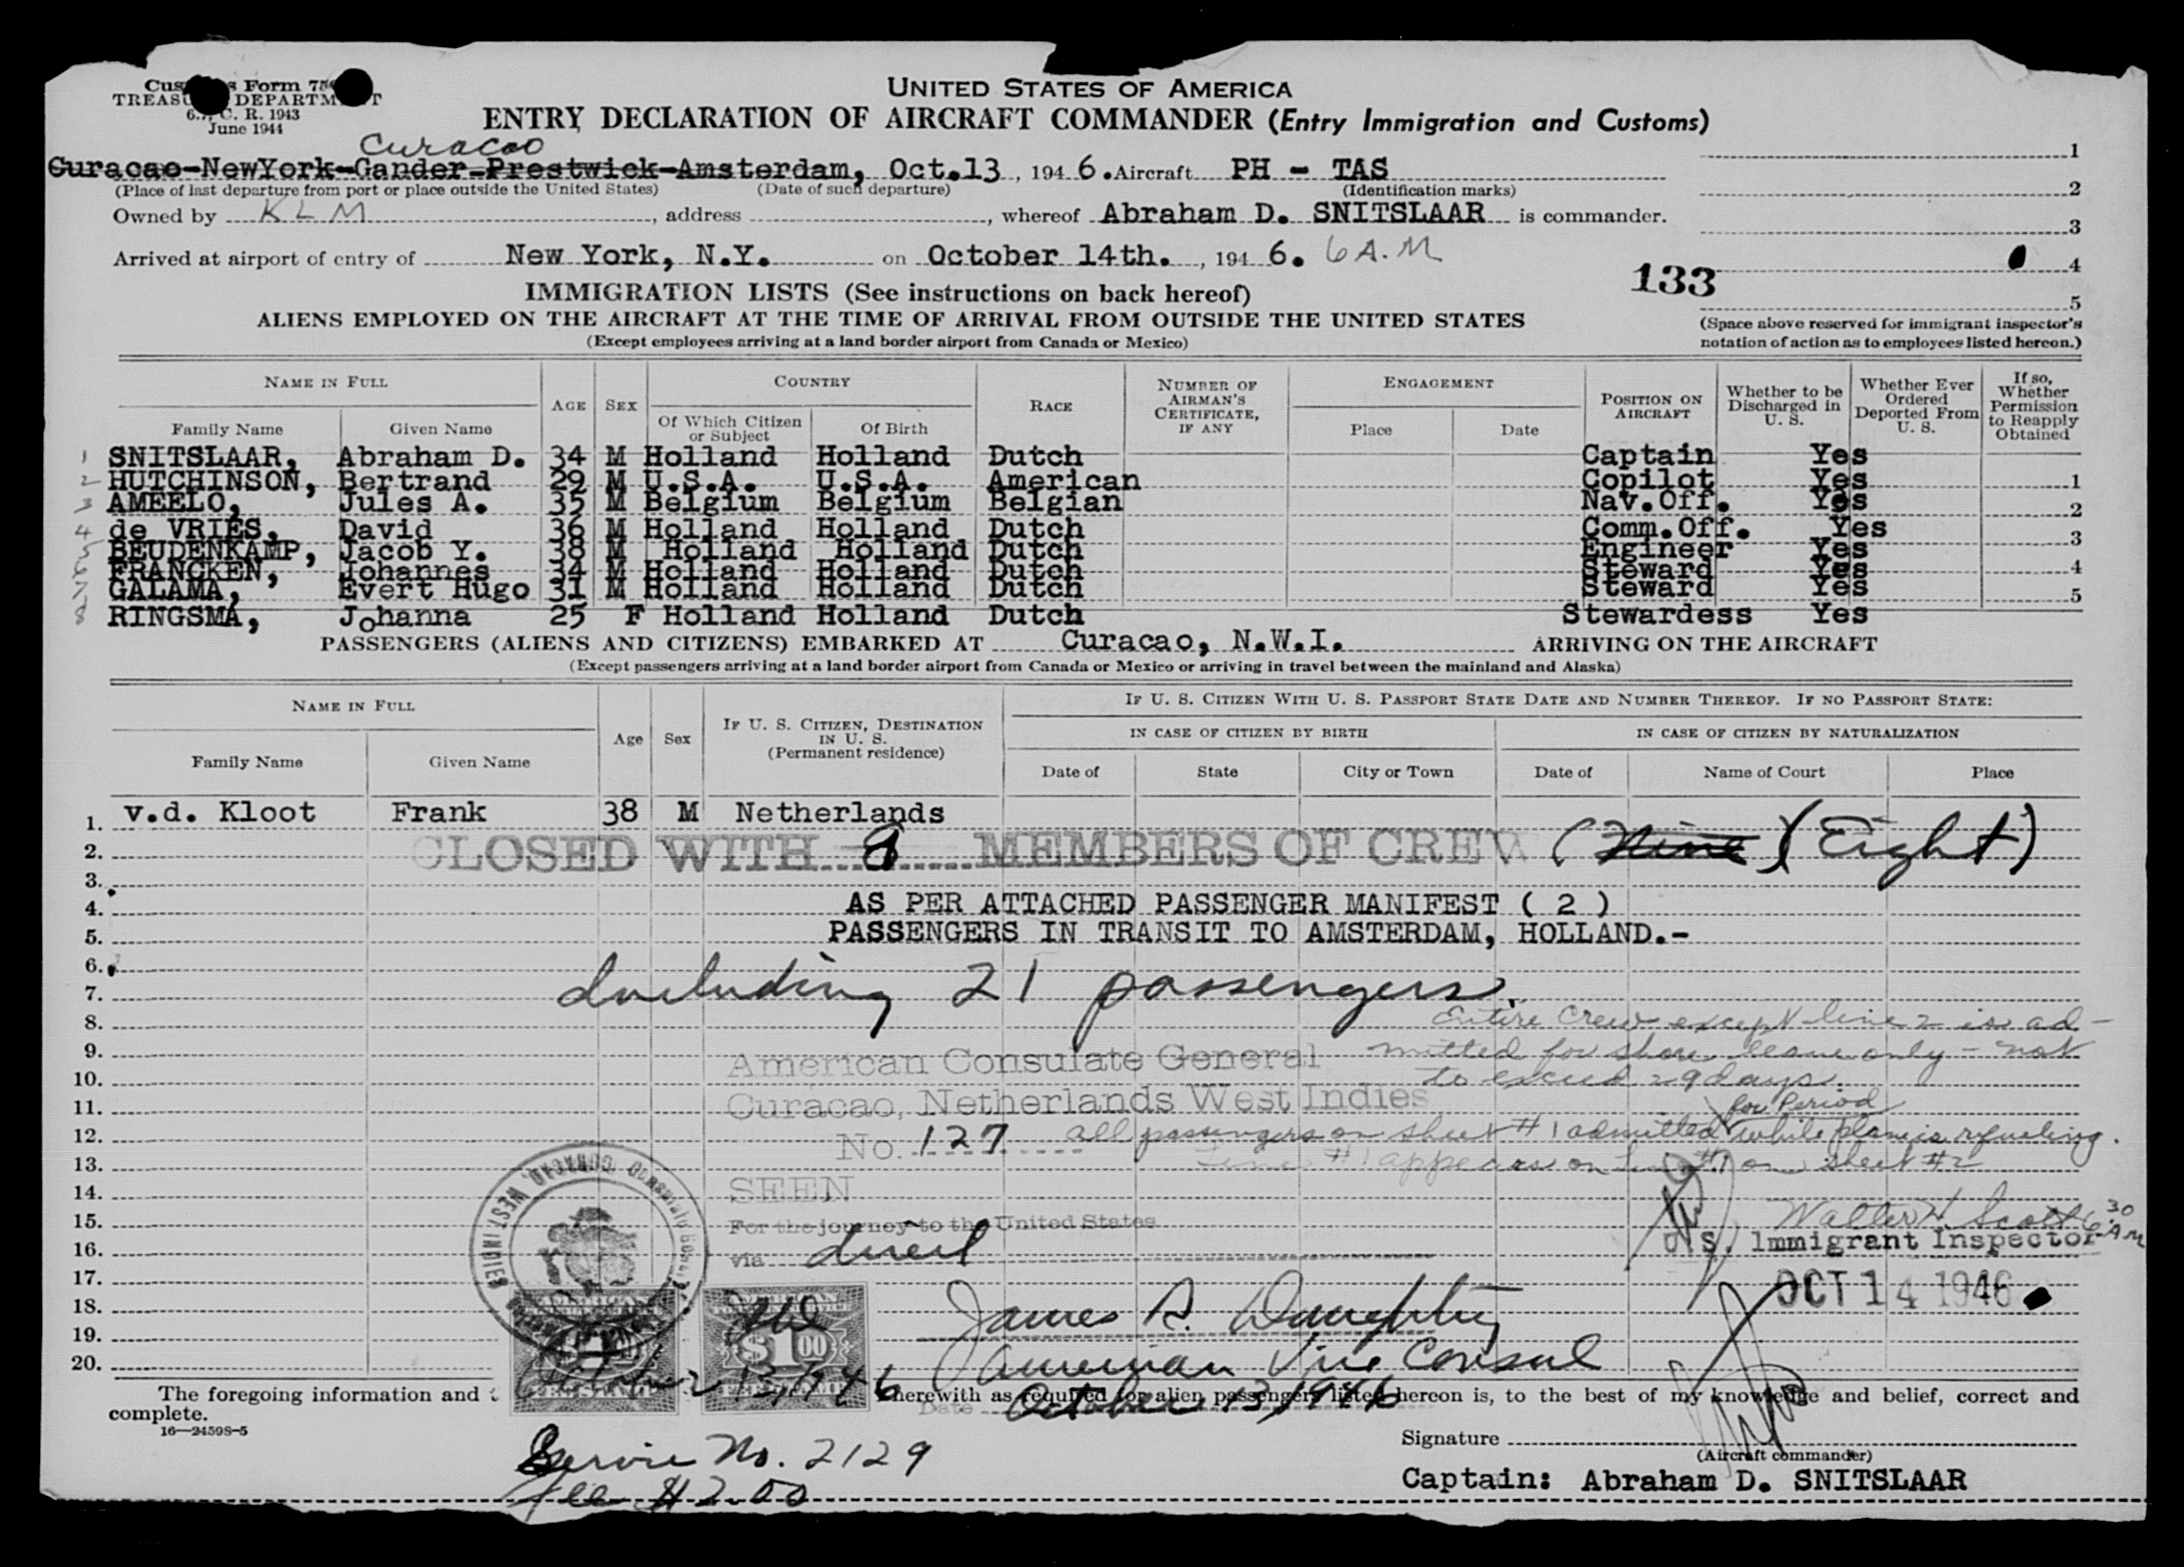 Customs Form 75
TREASURY DEPARTMENT
6.7, C. R. 1943
June 1944
UNITED STATES OF AMERICA
ENTRY DECLARATION OF AIRCRAFT COMMANDER (Entry Immigration and Customs)
Curacao
Curacao-NewYork-Gander-Prestwick-Amsterdam, Oct.13, 1946. Aircraft PH - TAS
(Place of last departure from port or place outside the United States) (Date of such departure) (Identification marks)
Owned by KLM, address, whereof Abraham D. SNITSLAAR is commander.
Arrived at airport of entry of New York, N.Y. on October 14th., 1946. 6 A.M
1
2
3
4
5
133
IMMIGRATION LISTS (See instructions on back hereof)
ALIENS EMPLOYED ON THE AIRCRAFT AT THE TIME OF ARRIVAL FROM OUTSIDE THE UNITED STATES
(Except employees arriving at a land border airport from Canada or Mexico)
(Space above reserved for immigrant inspector's
notation of action as to employees listed hereon.)
NAME IN FULL AGE SEX COUNTRY RACE NUMBER OF AIRMAN'S CERTIFICATE, IF ANY ENGAGEMENT POSITION ON AIRCRAFT Whether to be Discharged in U. S. Whether Ever Ordered Deported From U. S. If so, Whether Permission to Reapply Obtained
Family Name Given Name Of Which Citizen or Subject Of Birth Place Date
1 SNITSLAAR, Abraham D. 34 M Holland Holland Dutch Captain Yes
2 HUTCHINSON, Bertrand 29 M U.S.A. U.S.A. American Copilot Yes 1
3 AMEELO, Jules A. 35 M Belgium Belgium Belgian Nav.Off. Yes 2
4 de VRIES, David 36 M Holland Holland Dutch Comm.Off. Yes
5 BEUDENKAMP, Jacob Y. 38 M Holland Holland Dutch Engineer Yes 3
6 FRANCKEN, Johannes 34 M Holland Holland Dutch Steward Yes 4
7 GALAMA, Evert Hugo 31 M Holland Holland Dutch Steward Yes 5
8 RINGSMA, Johanna 25 F Holland Holland Dutch Stewardess Yes
PASSENGERS (ALIENS AND CITIZENS) EMBARKED AT Curacao, N.W.I. ARRIVING ON THE AIRCRAFT
(Except passengers arriving at a land border airport from Canada or Mexico or arriving in travel between the mainland and Alaska)
NAME IN FULL Age Sex IF U. S. CITIZEN, DESTINATION IN U. S. (Permanent residence) IF U. S. CITIZEN WITH U. S. PASSPORT STATE DATE AND NUMBER THEREOF. IF NO PASSPORT STATE:
IN CASE OF CITIZEN BY BIRTH IN CASE OF CITIZEN BY NATURALIZATION
Family Name Given Name Date of State City or Town Date of Name of Court Place
1. v.d. Kloot Frank 38 M Netherlands
2. CLOSED WITH 8 MEMBERS OF CREW (Nine) (Eight)
3.
4. AS PER ATTACHED PASSENGER MANIFEST ( 2 )
5. PASSENGERS IN TRANSIT TO AMSTERDAM, HOLLAND.-
6.
7. Including 21 passengers.
8. Entire Crew except line 2 is ad-
9. mitted for shore leave only - not
American Consulate General
10. to exceed 29 days.
11. Curacao, Netherlands West Indies
for Period
12. No. 127 all passengers on sheet #1 admitted while plane is refueling.
13. Line #1 appears on line #1 on sheet #2
14. SEEN
15. For the journey to the United States
Walter H. Scott 6:30 AM
16. via direct
U. S. Immigrant Inspector
17.
OCT 14 1946
18. James R. Daughtry
19. American Vice Consul
20.
AMERICAN CURACAO, WEST INDIES
$1 00
October 13, 1946
The foregoing information and herewith as required for alien passengers listed hereon is, to the best of my knowledge and belief, correct and
complete.
Date October 13, 1946
16—24598-5
Signature
(Aircraft commander)
Captain: Abraham D. SNITSLAAR
Service No. 2129
fee $2.00